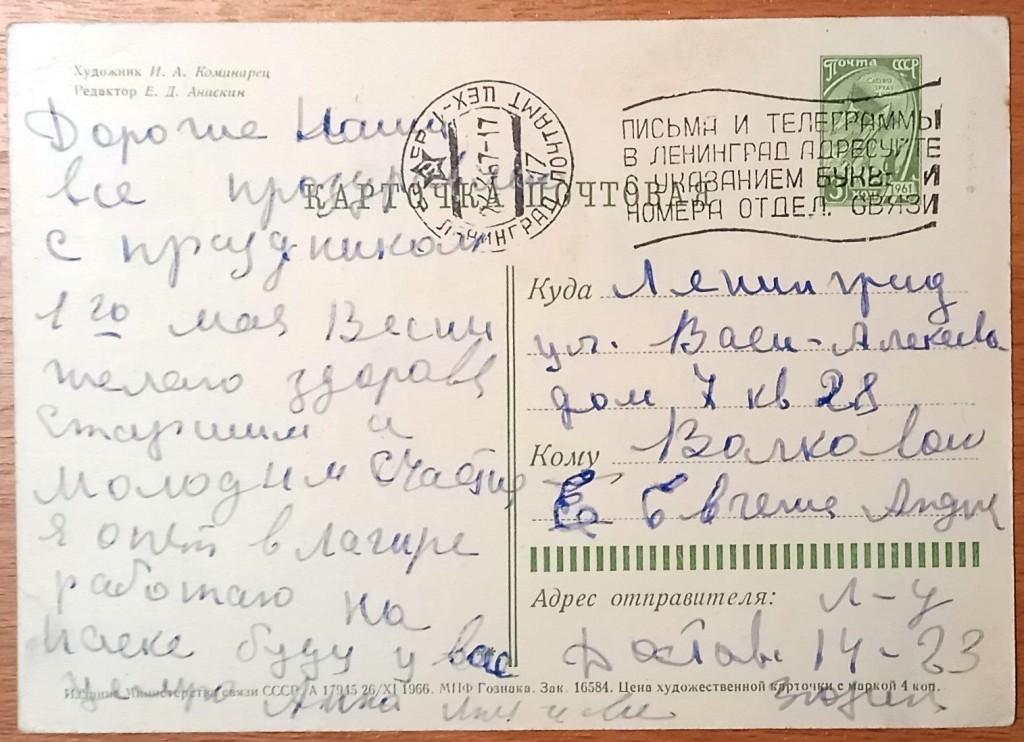 Художник И. А. Коминарец
Редактор Е. Д. Анискин
Почта СССР
1961
ЛЕНИНГРАД ПОЧТАМТ ЦЕХ-1
67-17
ПИСЬМА И ТЕЛЕГРАММЫ
В ЛЕНИНГРАД АДРЕСУЙТЕ
С УКАЗАНИЕМ БУКВЫ И
НОМЕРА ОТДЕЛ. СВЯЗИ
КАРТОЧКА ПОЧТОВАЯ
Дорогие Наши
все
с праздником
1го мая Весни
желаю здоравя
Старшим и
молодим Счастия
я опет в лагире
работаю на
буду у вас
Анна
Куда Ленинград
ул. Васи-Алексева
дом 7 кв 28
Кому Волковой
Евгение Андре
Адрес отправителя: Л-д
14-23
Издание Министерства связи СССР. А 17945 26/XI 1966. МПФ Гознака. Зак. 16584. Цена художественной карточки с маркой 4 коп.